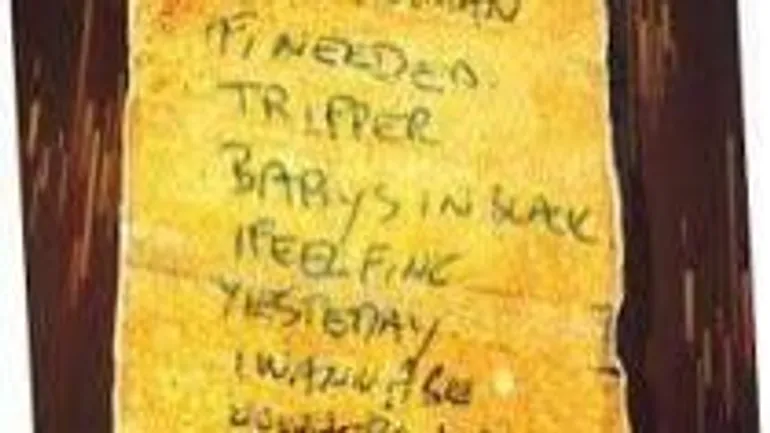 IF I NEEDED
TRIPPER
BABYS IN BLACK
I FEEL FINE
YESTERDAY
I WANNA BE